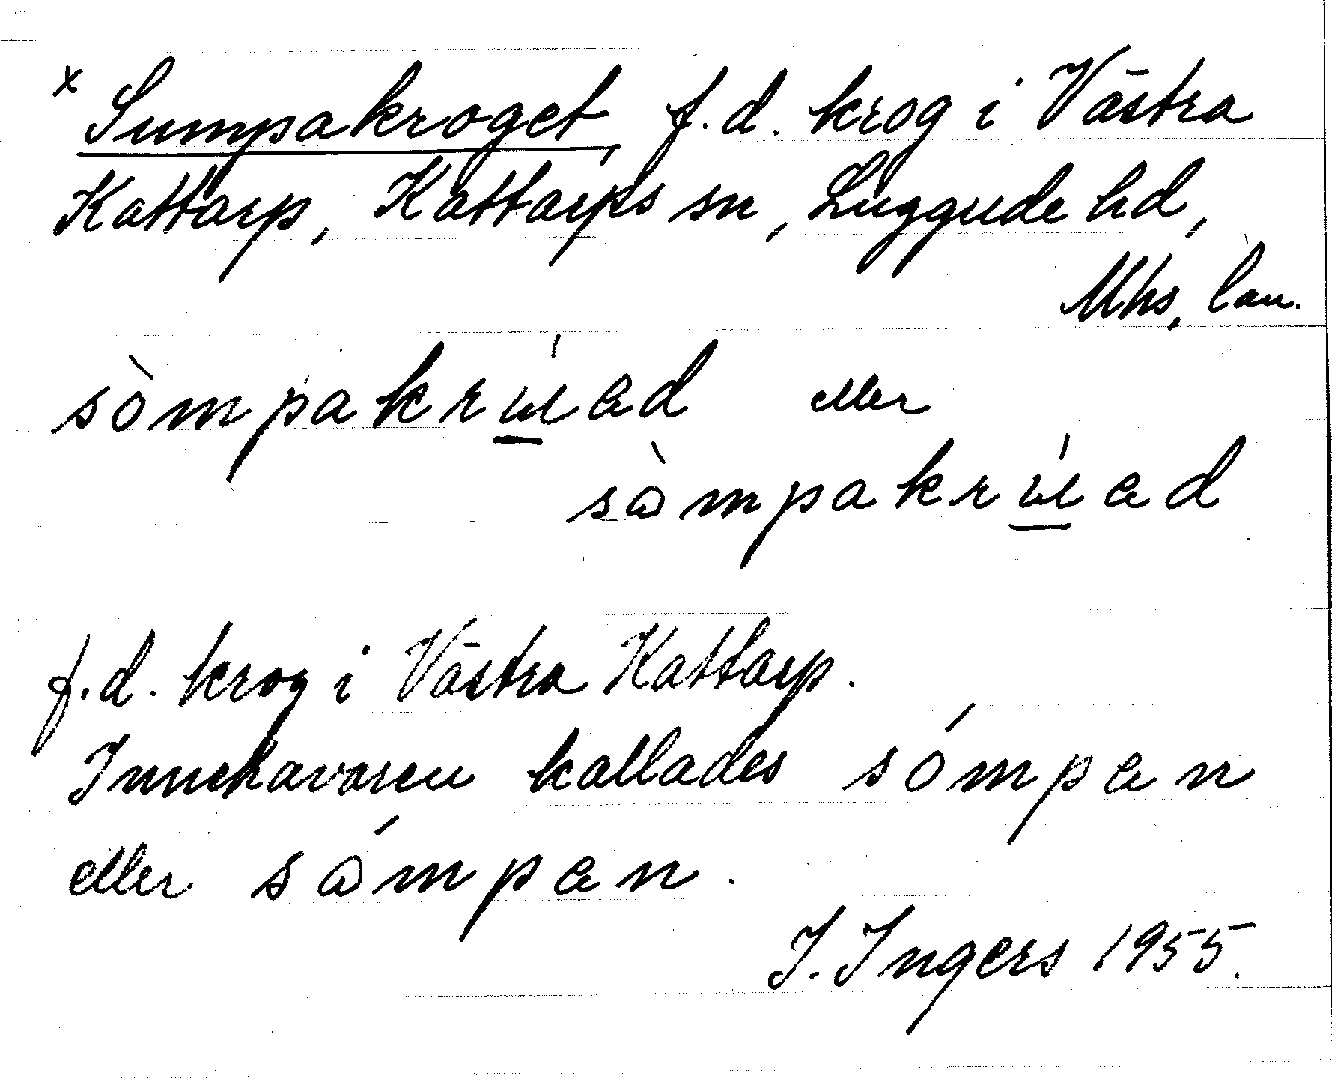 x Sumpakroget, f.d. krog i Västra
Kattarp, Kattarps sn, Luggude hd,
Mhs, län.
sòmpakrɯ́ad eller
sɷ̀mpakrɯ́ad
f.d. krog i Västra Kattarp.
Innehavaren kallades sómpan
eller sɷ́mpan.
I. Ingers 1955.